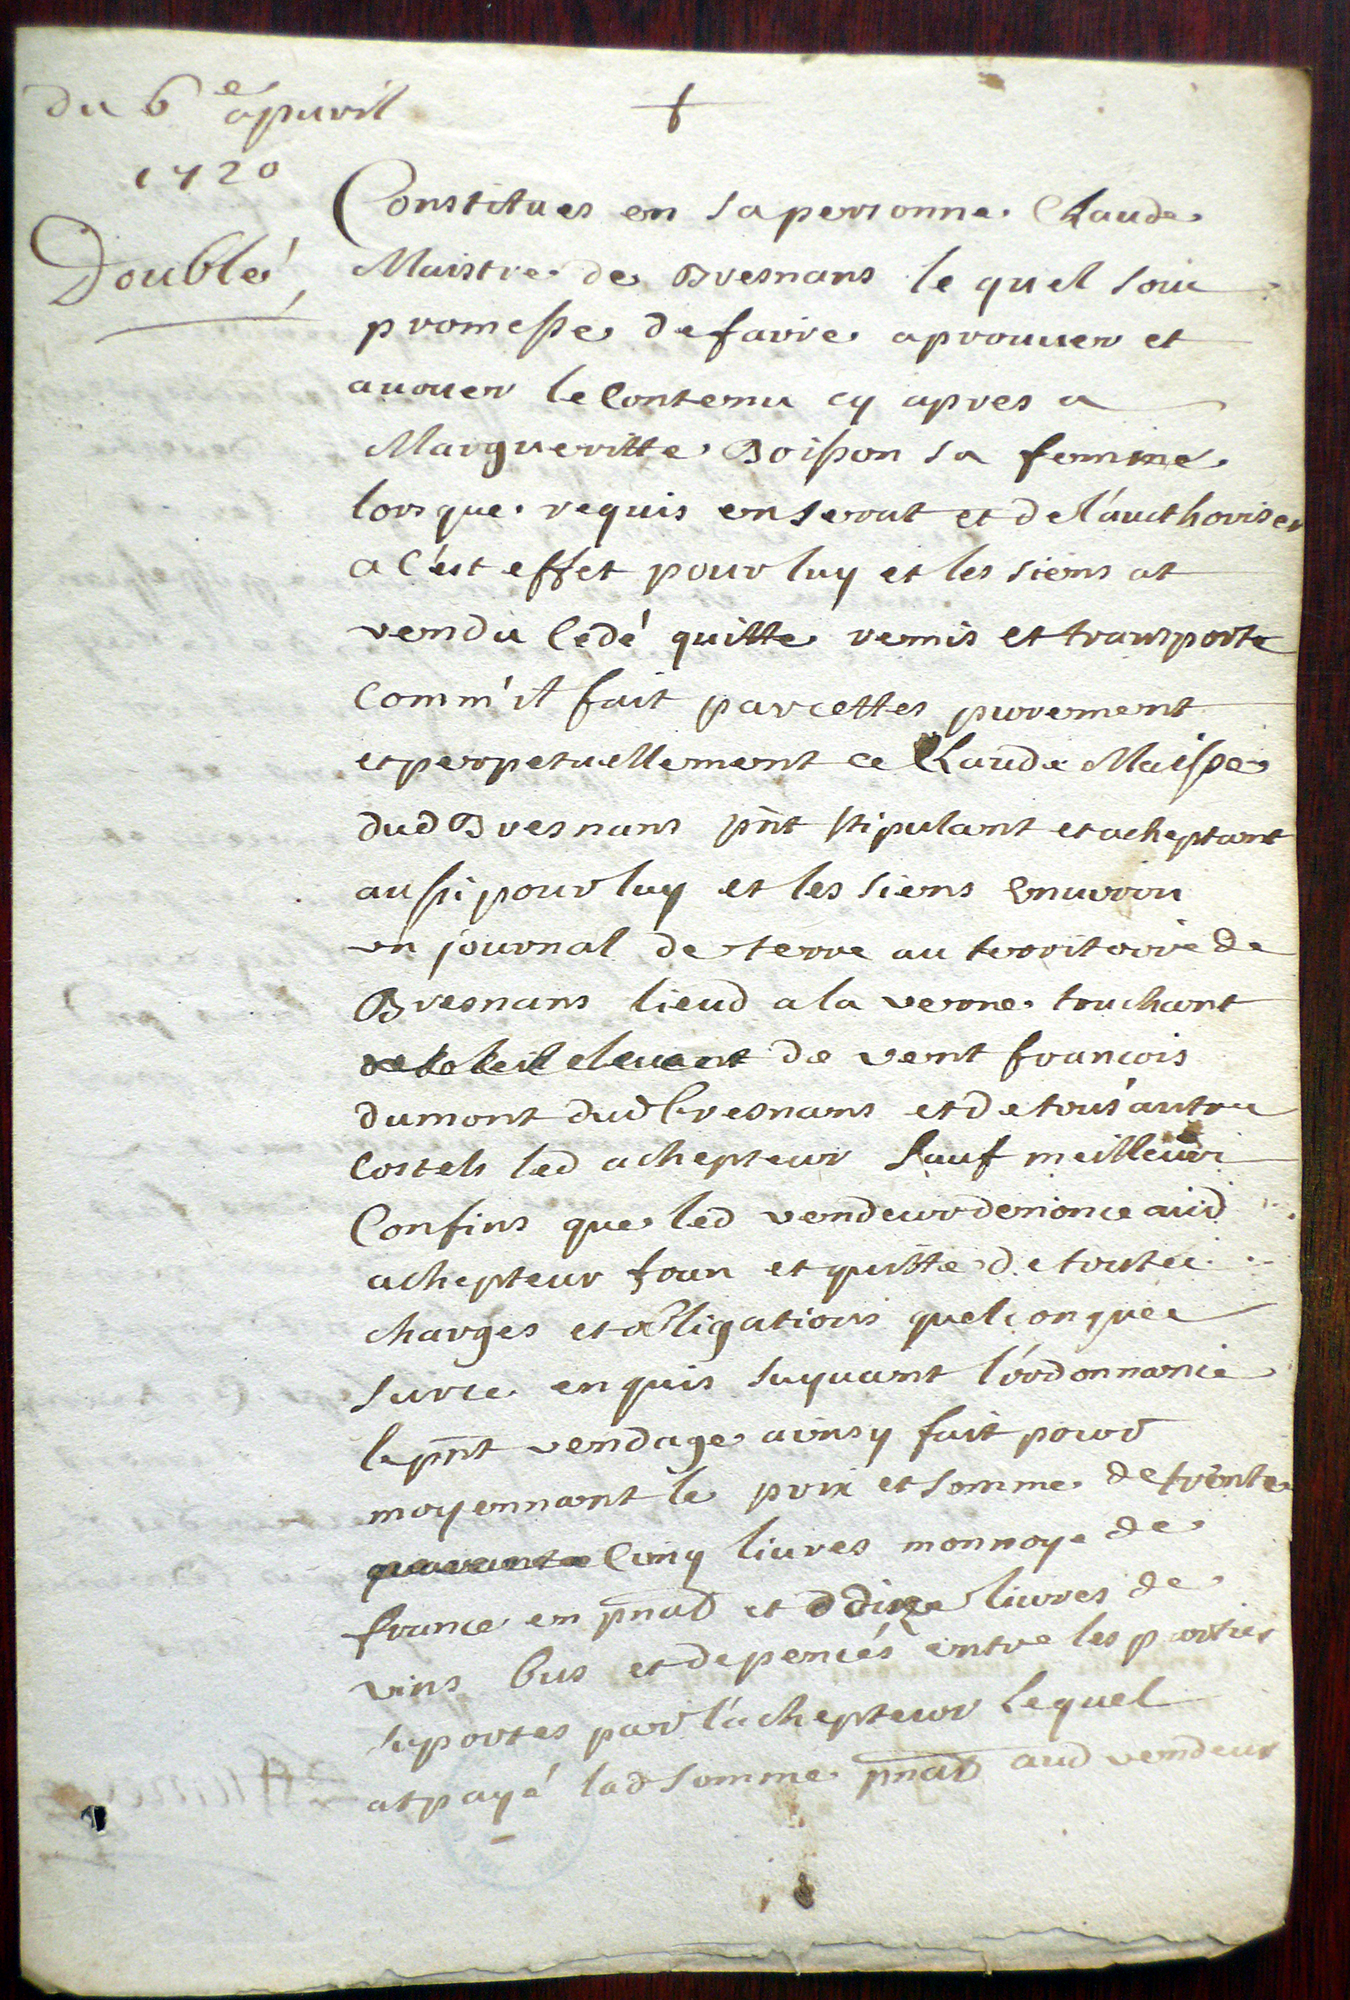 du 6e apuril
1720
Doublé
Constitues en sa personne Claude
Maistre de Bresnans lequel sou
promesse de faire aprouuer et
auouer le Contenu cy apres a
Margueritte Boisson sa femme
lorsque requis en serat et de l'aucthoriser
a c'est effet pour luy et les siens at
vendu Cedé quitte remis et transporte
Comm'il fait par cettes purement
et perpetuellement a Claude Maisse
dud Bresnans pnt stipulant et acheptant
aussi pour luy et les siens enuiron
un journal de terre au territoire de
Bresnans lieud a la verne touchant
de vent francois
dumont dud bresnans et de tous autre
Costels led achepteur sauf meilleur
Confins que led vendeur denonce aud
achepteur fran et quitte de toutes
charges et obligations quelconques
surce enquis suyuant l'ordonnance
le pnt vendage ainsy fait pour
moyennant le prix et somme de trente
Cinq liures monnoye de
france en pnal et dix liures de
vins bus et depencés entre les parties
suportes par l'achepteur lequel
at payé lad somme pnal aud vendeur